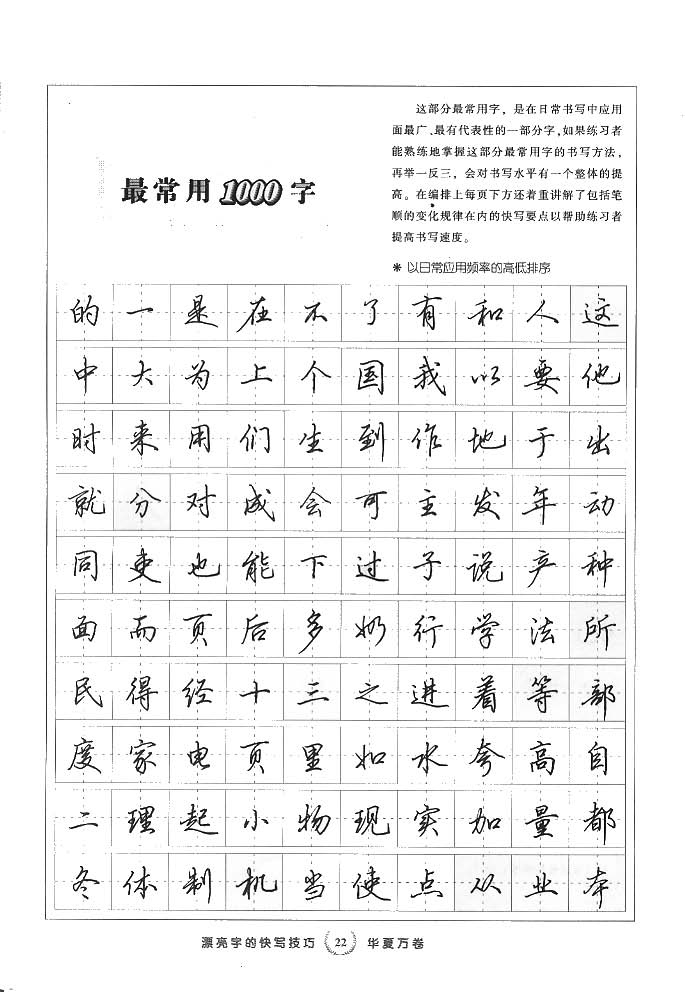 这部分最常用字，是在日常书写中应用
面最广、最有代表性的一部分字，如果练习者
能熟练地掌握这部分最常用字的书写方法，
再举一反三，会对书写水平有一个整体的提
高。在编排上每页下方还着重讲解了包括笔
顺的变化规律在内的快写要点以帮助练习者
提高书写速度。
最常用1000字
＊ 以日常应用频率的高低排序
的一是在不了有和人这
中大为上个国我以要他
时来用们生到作地于出
就分对成会可主发年动
同吏也能下过子说产种
面而页后多奶行学法所
民得经十三之进着等部
度家电页里如水夸高自
二理起小物现实加量都
冬体制机当使点从业本
漂亮字的快写技巧 22 华夏万卷